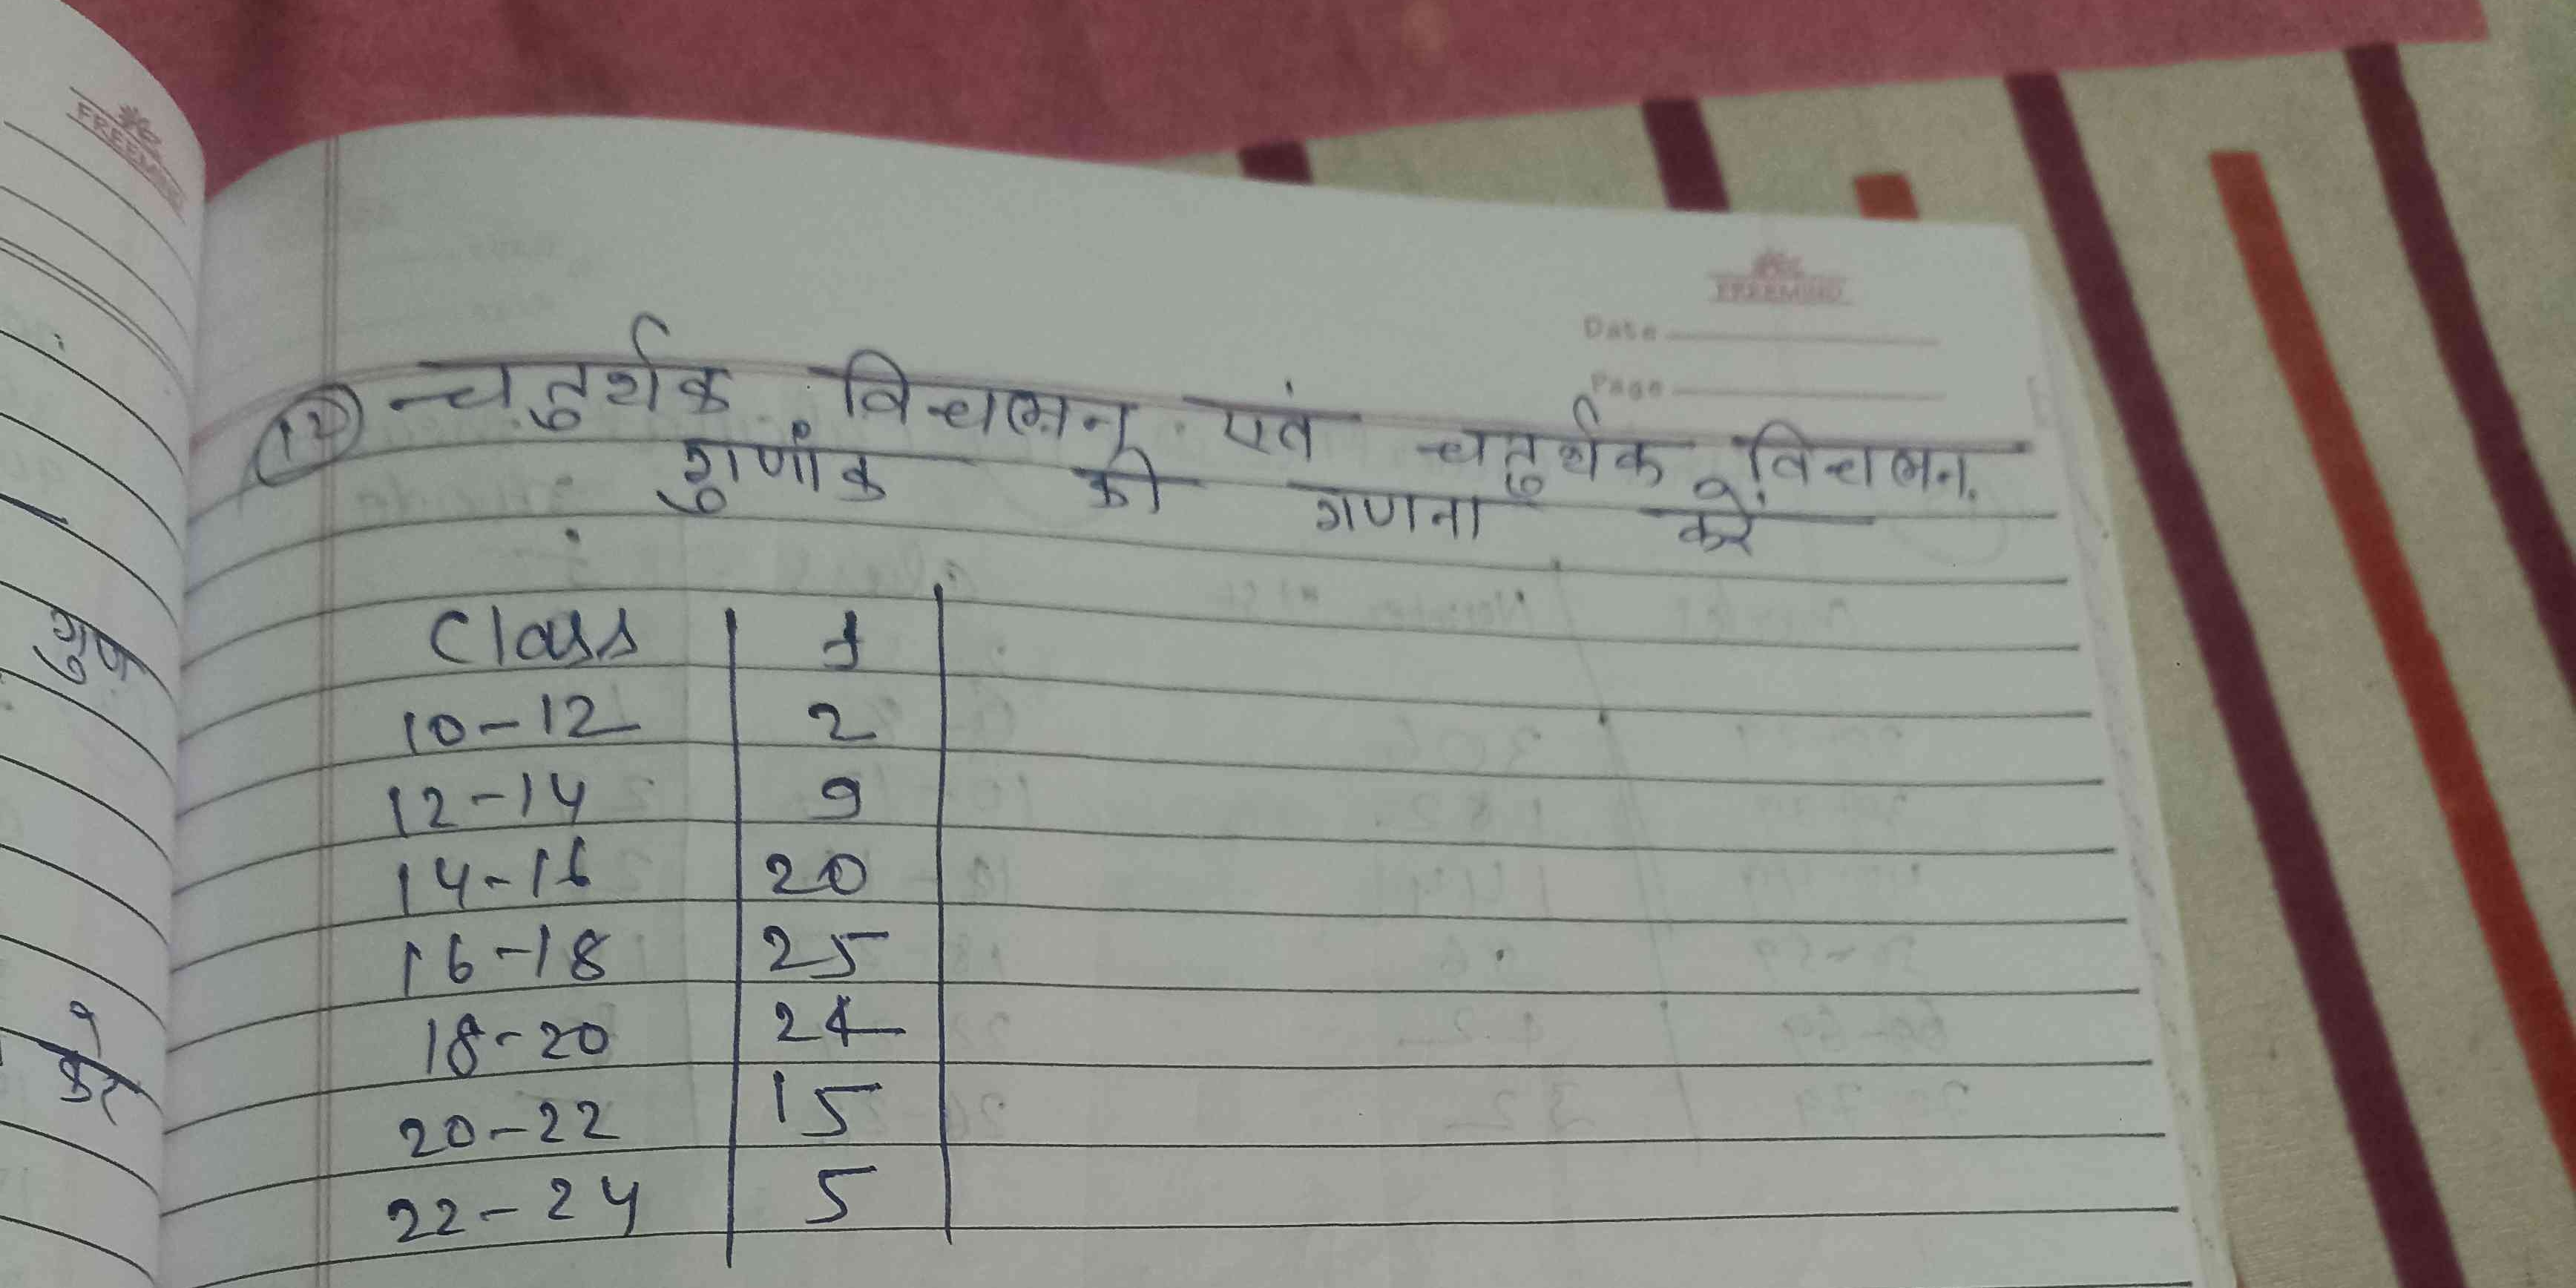 FREEMIND
FREEMIND
Date
Page
12 चतुर्थक विचलन एवं चतुर्थक विचलन
गुणांक की गणना करें
Class f
10-12 2
12-14 9
14-16 20
16-18 25
18-20 24
20-22 15
22-24 5
गुण
करे